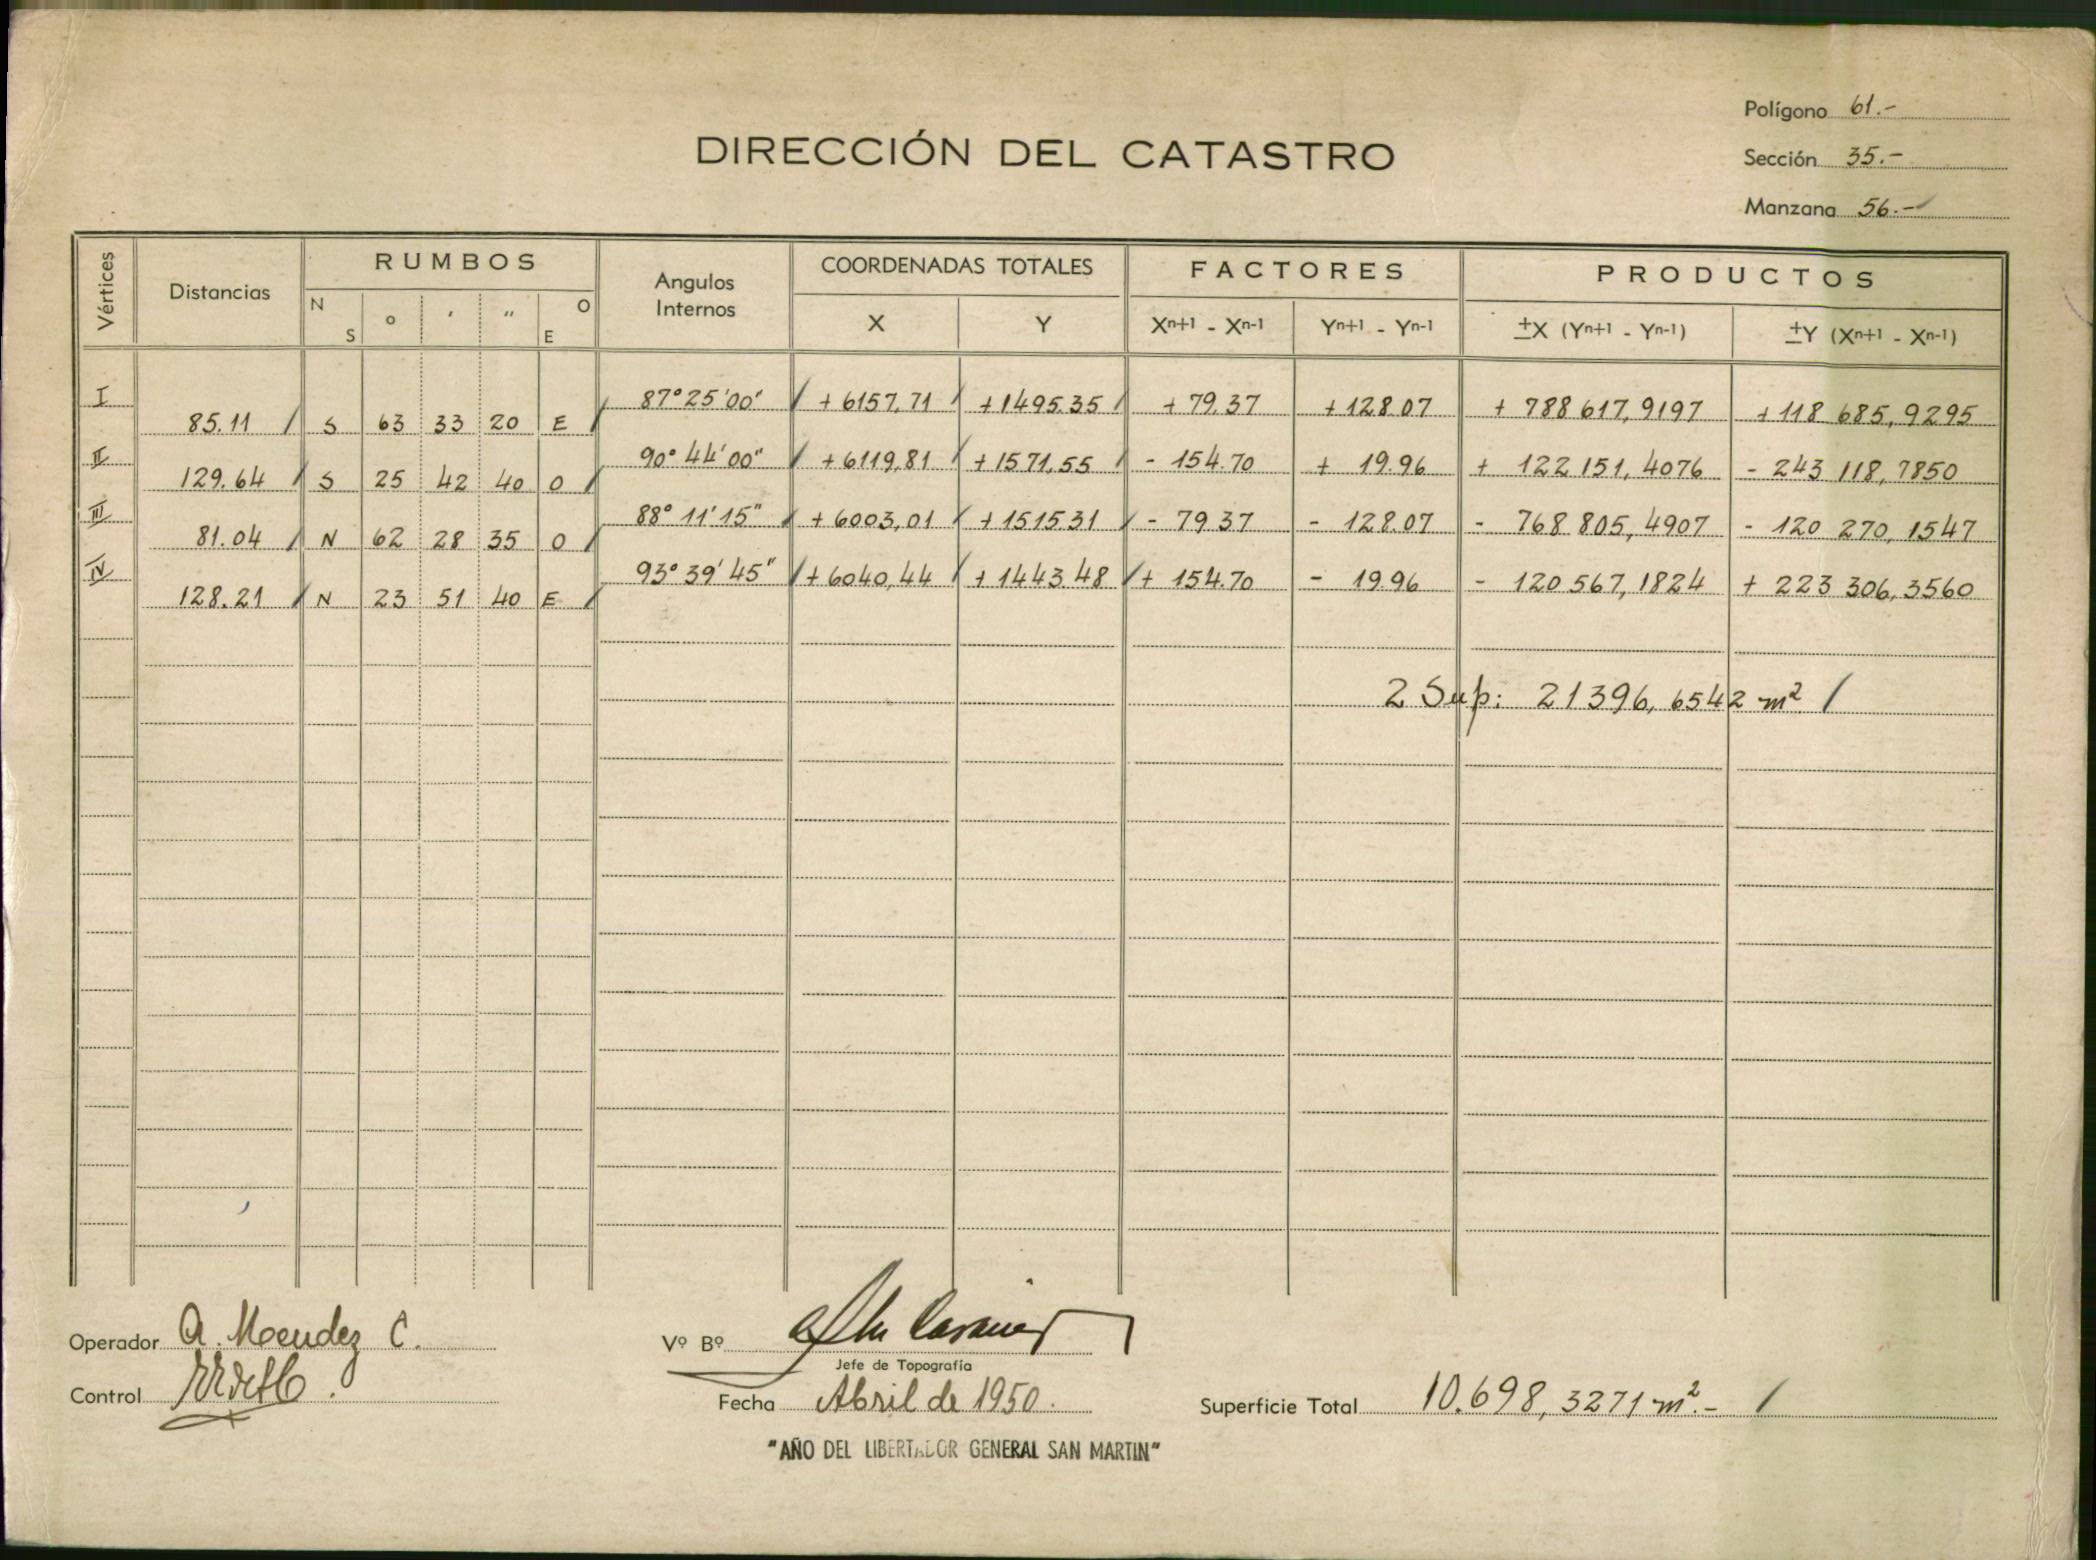 Polígono 61.-
DIRECCIÓN DEL CATASTRO
Sección 35.-
Manzana 56.-
Vértices Distancias RUMBOS Angulos Internos COORDENADAS TOTALES FACTORES PRODUCTOS
N S o ' " O E X Y Xn+1 - Xn-1 Yn+1 - Yn-1 ±X (Yn+1 - Yn-1) ±Y (Xn+1 - Xn-1)
I 87°25'00" + 6157,71 +1495.35 + 79.37 + 128.07 + 788 617,9197 + 118 685,9295
85.11 S 63 33 20 E
II 90°44'00" + 6119,81 + 1571.55 - 154.70 + 19.96 + 122 151,4076 - 243 118,7850
129.64 S 25 42 40 O
III 88°11'15" + 6003,01 + 1515.31 - 79.37 - 128.07 - 768 805,4907 - 120 270,1547
81.04 N 62 28 35 O
IV 93°39'45" + 6040,44 + 1443.48 + 154.70 - 19.96 - 120 567,1824 + 223 306,3560
128.21 N 23 51 40 E
2 Sup: 21396,6542 m²
Operador A. Mendez C.
Vº Bº
Jefe de Topografía
Control
Fecha Abril de 1950.
Superficie Total 10.698,3271 m².-
"AÑO DEL LIBERTADOR GENERAL SAN MARTIN"